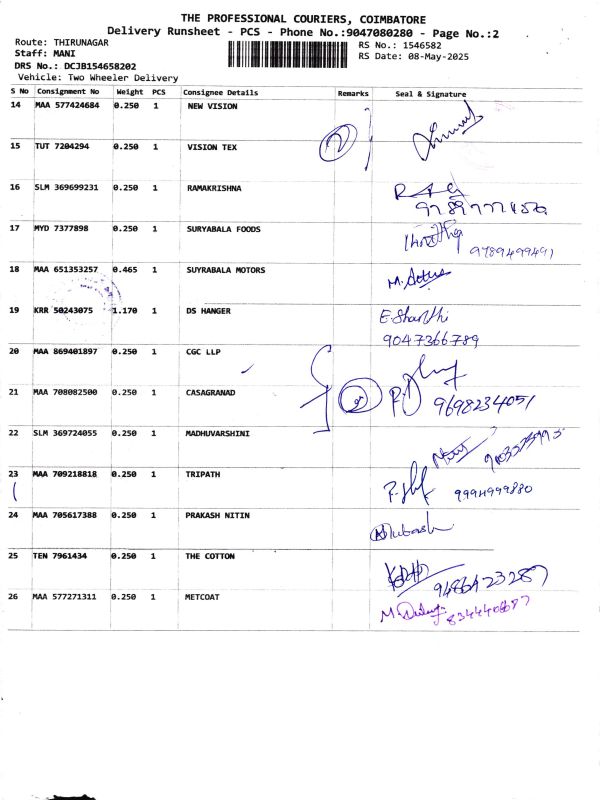 THE PROFESSIONAL COURIERS, COIMBATORE
Delivery Runsheet - PCS - Phone No.:9047080280 - Page No.:2
Route: THIRUNAGAR
Staff: MANI
DRS No.: DCJB154658202
Vehicle: Two Wheeler Delivery
RS No.: 1546582
RS Date: 08-May-2025
S No Consignment No Weight PCS Consignee Details Remarks Seal & Signature
14 MAA 577424684 0.250 1 NEW VISION
15 TUT 7204294 0.250 1 VISION TEX 2
16 SLM 369699231 0.250 1 RAMAKRISHNA
17 MYD 7377898 0.250 1 SURYABALA FOODS
9789499491
18 MAA 651353257 0.465 1 SUYRABALA MOTORS
19 KRR 50243075 1.170 1 DS HANGER E.Shanthi
9047366789
20 MAA 869401897 0.250 1 CGC LLP
21 MAA 708082500 0.250 1 CASAGRANAD 2 9698234051
22 SLM 369724055 0.250 1 MADHUVARSHINI
23 MAA 709218818 0.250 1 TRIPATH 9994999880
24 MAA 705617388 0.250 1 PRAKASH NITIN
25 TEN 7961434 0.250 1 THE COTTON 9486423287
26 MAA 577271311 0.250 1 METCOAT